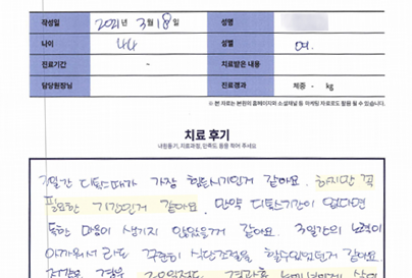 작성일 2021년 3월 18일 성명
나이 성별 여.
진료기간 - 치료받은 내용
담당원장님 진료경과 체중 - kg
※ 본 자료는 본원의 홈페이지와 소셜채널 등 마케팅 자료로도 활용 될 수 있습니다.
치료 후기
내원동기, 치료과정, 만족도 등을 적어 주세요
3일간 디톡스때가 가장 힘든시기인거 같아요. 하지만 꼭
필요한 기간인거 같아요. 만약 디톡스기간이 없다면
독한 마음이 생기지 않았을거 같아요. 3일간의 노력이
아까워서 라도 꾸준히 식단조절을 할수있었던거 같아요.
저같은 경우